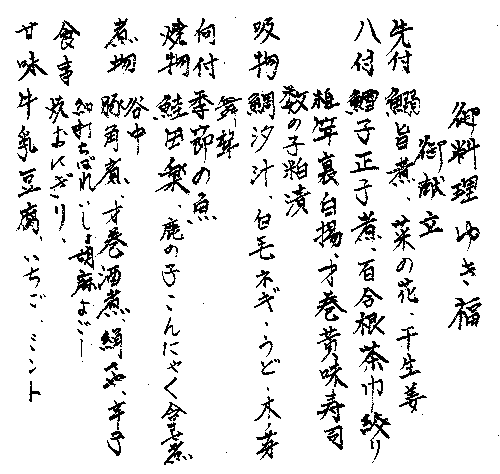 御料理 ゆき福
御献立
先付 鰯旨煮、菜の花、干生姜
八付 鱈子正子煮、百合根茶巾絞り
粗笄裏白揚、才巻黄味寿司
数の子粕漬
吸物 鯛汐汁、白毛ネギ、うど、木ノ芽
舞茸
向付 季節の魚
焼物 鮭田楽、鹿の子こんにゃく含煮
谷中
煮物 豚角煮、才巻酒煮、絹さや、辛子
食事 焼おにぎり、
甘味 牛乳豆腐、いちご、ミント